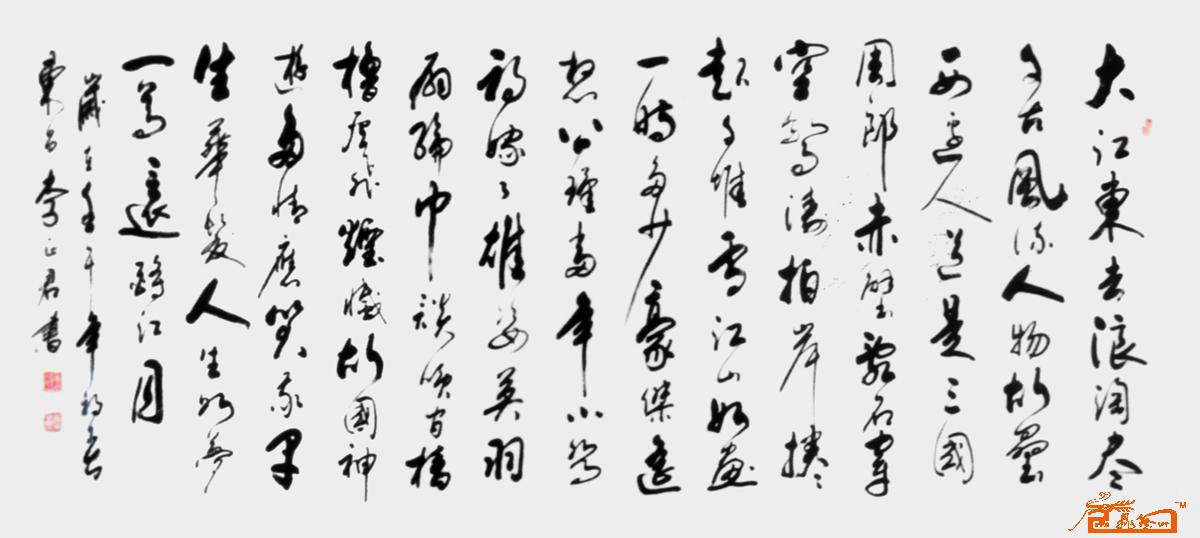 大江東去浪淘尽
千古風流人物故壘
西邊人道是三國
周郎赤壁亂石穿
空驚濤拍岸捲
起千堆雪江山如畫
一時多少豪傑遙
想公瑾當年小喬
初嫁了雄姿英羽
扇綸巾談笑間檣
櫓灰飛煙滅故國神
遊多情應笑我早
生華髮人生如夢
一尊還酹江月
歲在壬午年初春
東昌李正君書